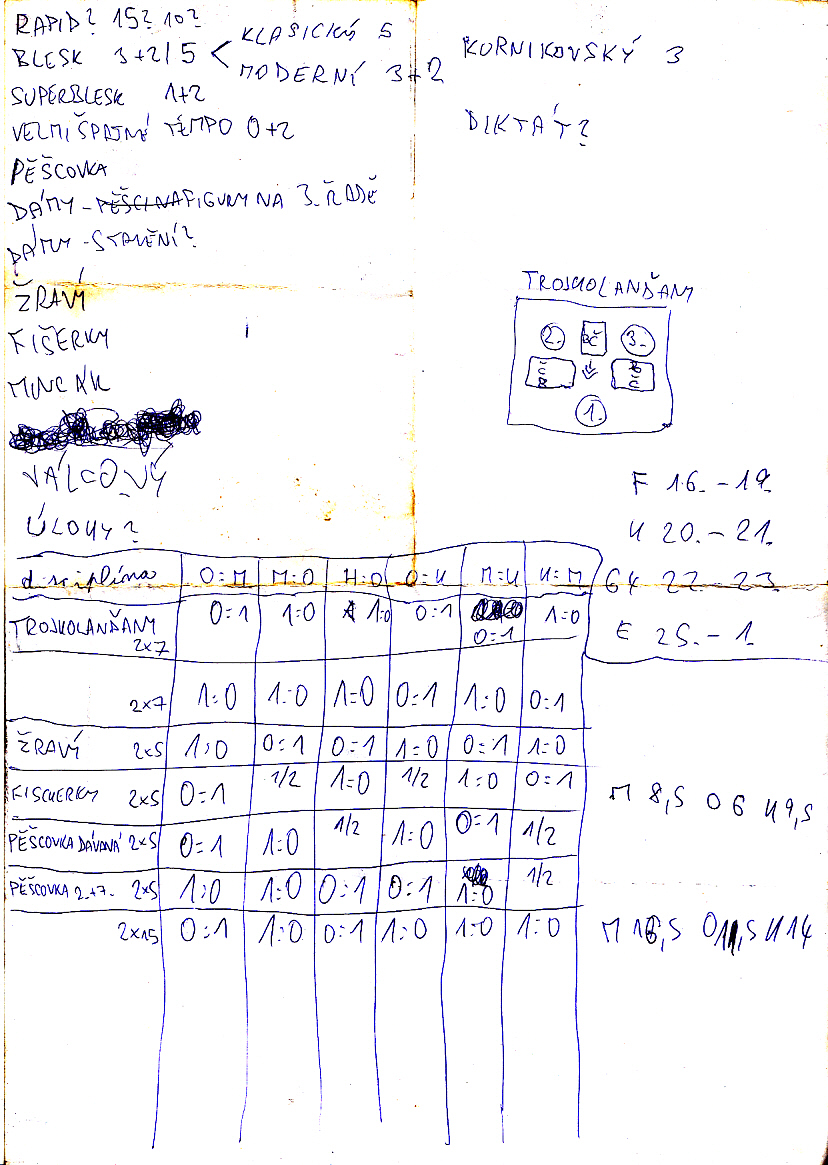 RAPID? 15? 10?
BLESK 3+2/5 < KLASICKÝ 5
MODERNÍ 3+2
KURNIKOVSKÝ 3
SUPERBLESK 1+2
VELMI ŠPATNÉ TEMPO 0+2
DIKTÁT?
PĚŠCOVKA
DÁMY - FIGURY NA 3. ŘADĚ
DÁMY - STAVĚNÍ?
ŽRAVÝ
FIŠERKY
TROJKOLANĎANY
2. BČ 3.
1.
VÁLCOVÝ
ÚLOHY?
F 16. - 19.
U 20. - 21.
64 22. - 23.
E 25. - 1.
disciplína O:M M:O H:O O:U M:U U:M
TROJKOLANĎANY 2x7 0:1 1:0 1:0 0:1 0:1 1:0
2x7 1:0 1:0 1:0 0:1 1:0 0:1
ŽRAVÝ 2x5 1:0 0:1 0:1 1:0 0:1 1:0
FISCHERKY 2x5 0:1 1/2 1:0 1/2 1:0 0:1
M 8,5 O 6 U 9,5
PĚŠCOVKA DÁVANÁ 2x5 0:1 1:0 1/2 1:0 0:1 1/2
PĚŠCOVKA 2.+7. 2x5 1:0 1:0 0:1 0:1 1:0 1/2
2x15 0:1 1:0 0:1 1:0 1:0 1:0
M 16,5 O 11,5 U 14